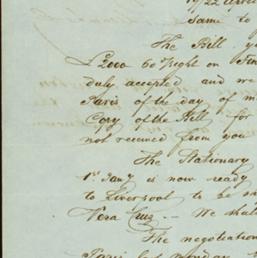 Same to
The Bill
£2000 60 %sight on
duly accepted and we
Paris of the day of m
Copy of the Bill for
not received from you
The Stationary
1st Jany is now ready
to Liverpool to be sh
Vera Cruz — We shall
The negotiation
Paris last Monday